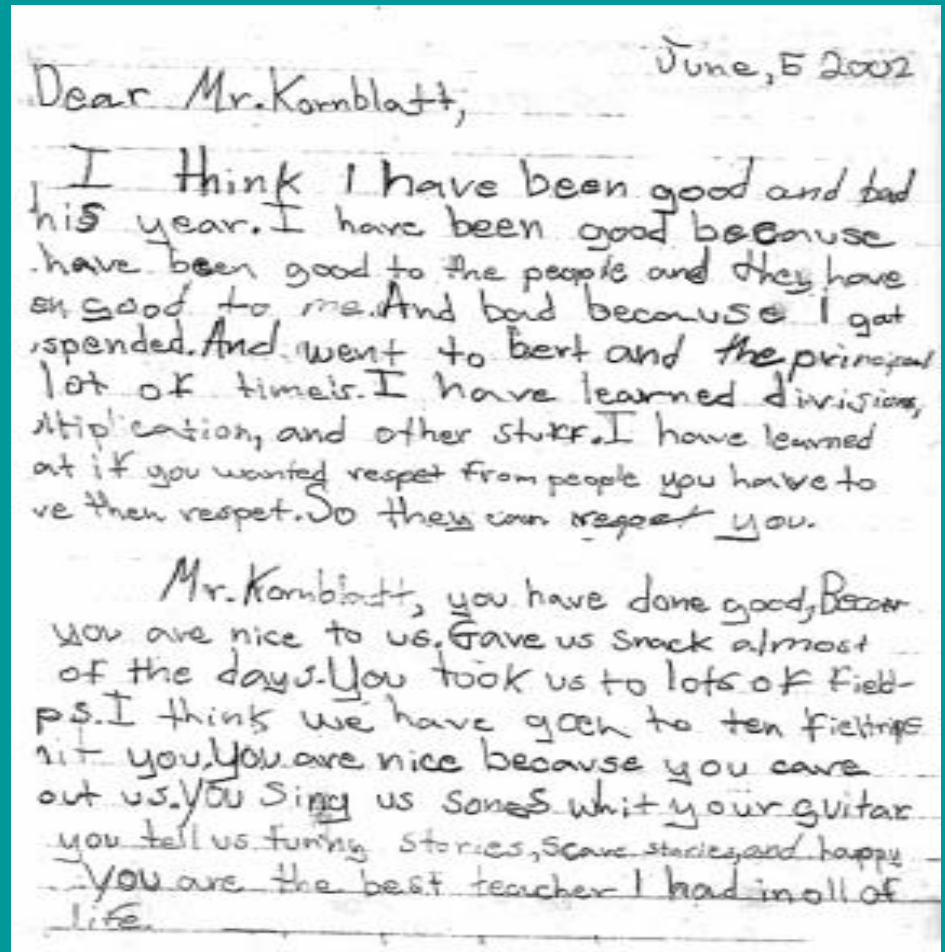 June, 5 2002
Dear Mr. Kornblatt,
I think I have been good and bad
his year. I have been good because
have been good to the people and they have
en good to me. And bad because I got
spended. And went to bert and the principal
lot of timeis. I have learned divisions,
ltiplication, and other stuff. I have learned
at if you wanted respet from people you have to
ve then respet. So they can respet you.
Mr. Kornblatt, you have done good, Becaus
you are nice to us. Gave us snack almost
of the days. You took us to lots of field-
ps. I think we have goen to ten fieltrips
hit you. You are nice because you care
out us. You sing us songs whit your guitar
you tell us funny stories, scare stories, and happy
You are the best teacher I had in oll of
life.